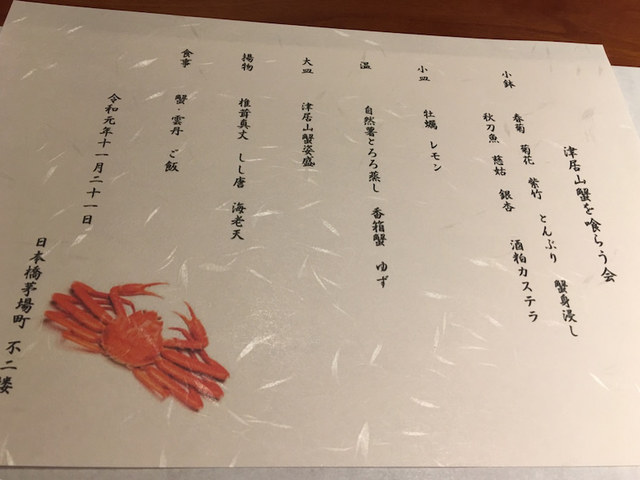 津居山蟹を喰らう会
小鉢 春菊 菊花 紫竹 とんぶり 蟹身浸し
秋刀魚 慈姑 銀杏 酒粕カステラ
小皿 牡蠣 レモン
温 自然薯とろろ蒸し 香箱蟹 ゆず
大皿 津居山蟹姿盛
揚物 椎茸真丈 しし唐 海老天
食事 蟹・雲丹 ご飯
令和元年十一月二十一日
日本橋茅場町 不二楼